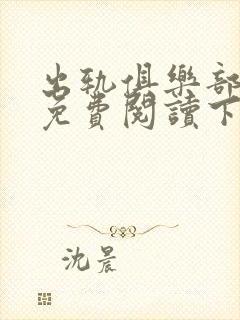 出軌俱樂部
免費閱讀下
沈晨